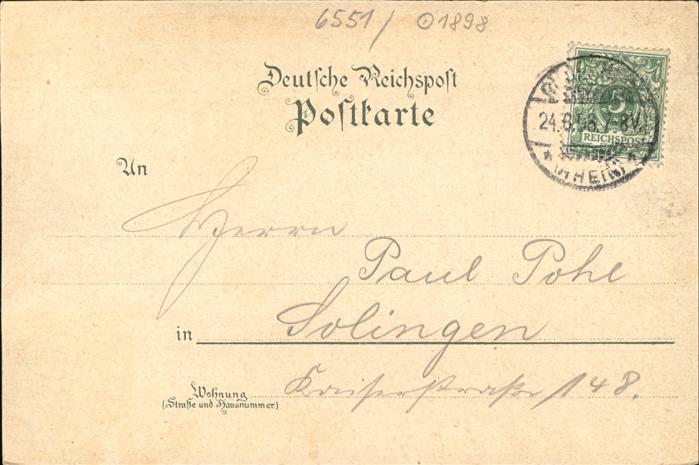 6551/ ⊙1898
Deutsche Reichspost
Postkarte
5
REICHSPOST
24. 7-8V.
(RHEIN)
An
Herrn
Paul Pohl
in Solingen
Wohnung Kaiserstraße 148.
(Straße und Hausnummer)